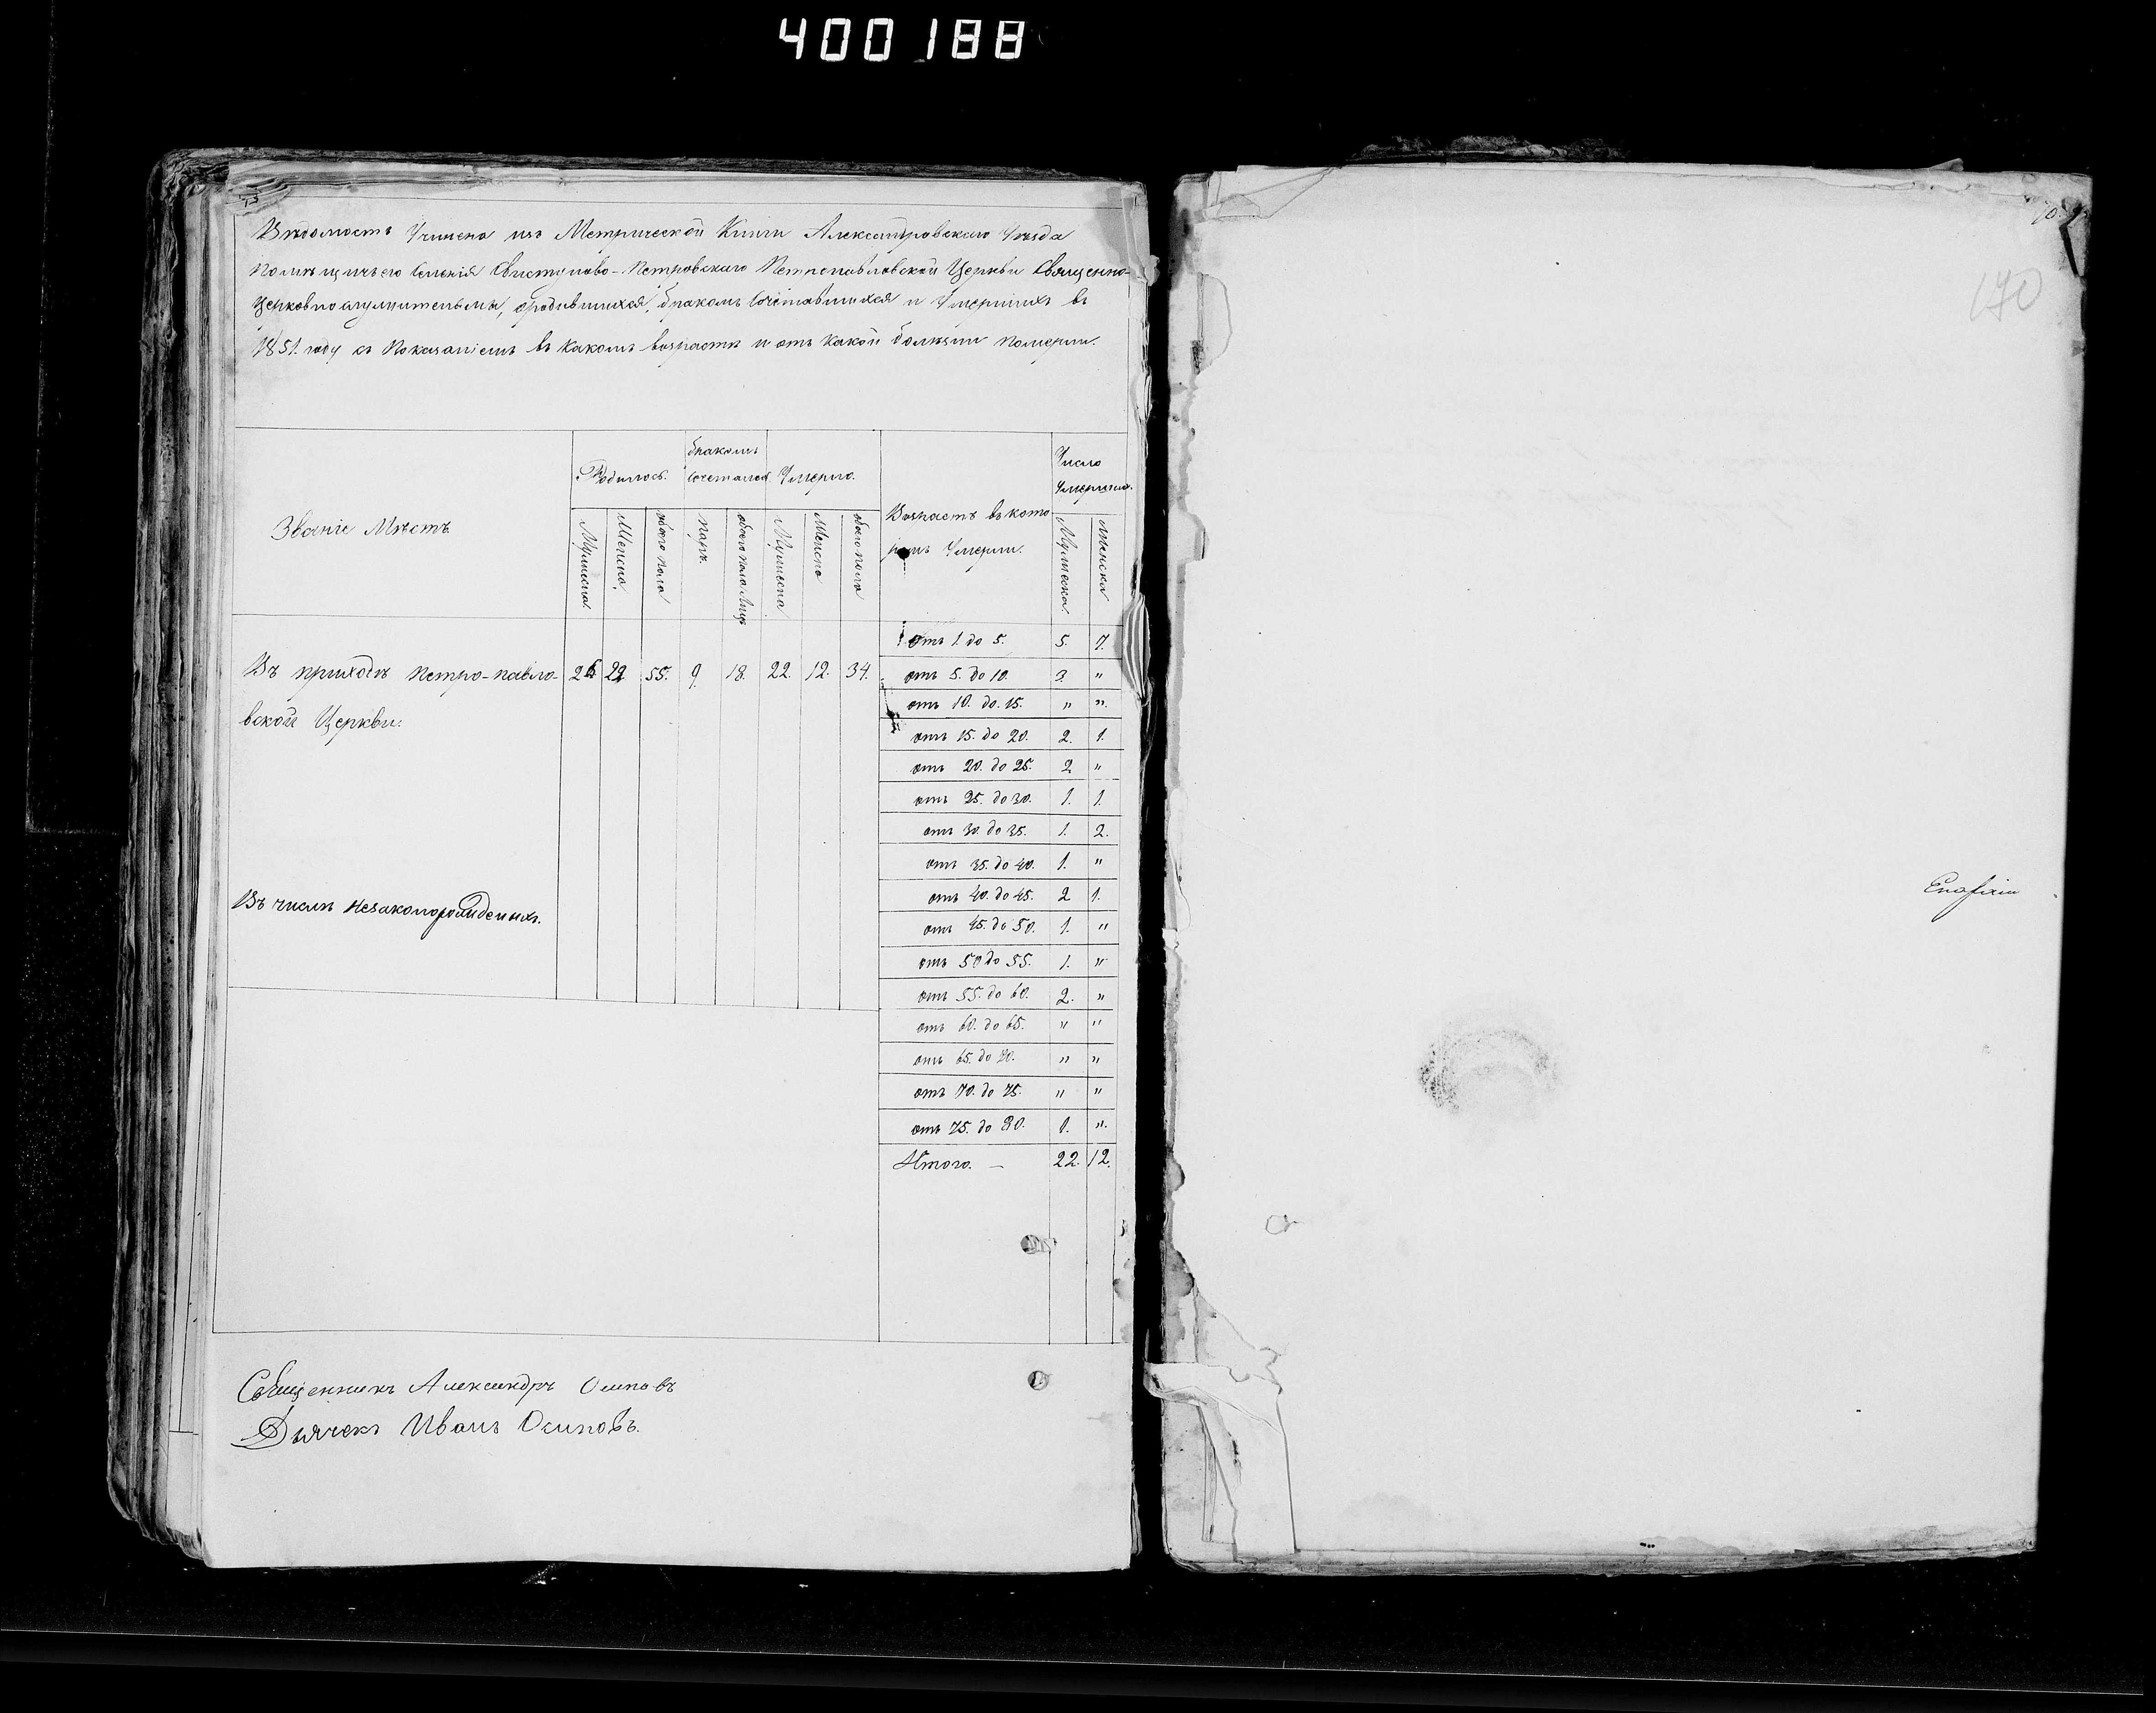 400188
Вѣдомость Учинена изъ Метрической Книги Александровскаго Уѣзда
Помѣщичьего Селенія Свистуново-Петровскаго Петропавловской Церкви Священно-
Церковнослужительми, ородившихся, бракомъ Сочетавшихся и Умершихъ въ
1851. году съ Показаніемъ въ Какомъ возрастѣ и отъ Какой болѣзни померли.
Званіе Мѣстъ.
Родилось.
бракомъ
Сочеталось.
Умерло.
Возрастъ въ кото
ромъ Умерли.
Число
Умершихъ.
Мужеска.
Женска.
обоего пола
паръ.
обоего пола Лицъ
Мужеска
Женска
обоего пола
Мужеска.
Женска
Въ приходѣ Петро-павло- 26 29 55. 9. 18. 22. 12. 34.
вской Церкви.
Въ числѣ Незаконорожденыхъ.
отъ 1. до 5. 5. 7.
отъ 5. до 10. 3. "
отъ 10. до. 15. " ".
отъ 15. до 20. 2. 1.
отъ 20. до 25. 2 "
отъ 25. до 30. 1. 1.
отъ 30. до 35. 1. 2.
отъ 35. до 40. 1. "
отъ 40. до 45. 2 1.
отъ 45. до 50. 1. "
отъ 50 до 55. 1. "
отъ 55. до 60. 2. "
отъ 60. до 65. " "
отъ 65. до 70. " "
отъ 70. до 75. " "
отъ 75. до 80. 1. ".
Итого. — 22. 12.
Священникъ Александръ Осиповъ
Дьячекъ Иванъ Осиповъ.
170